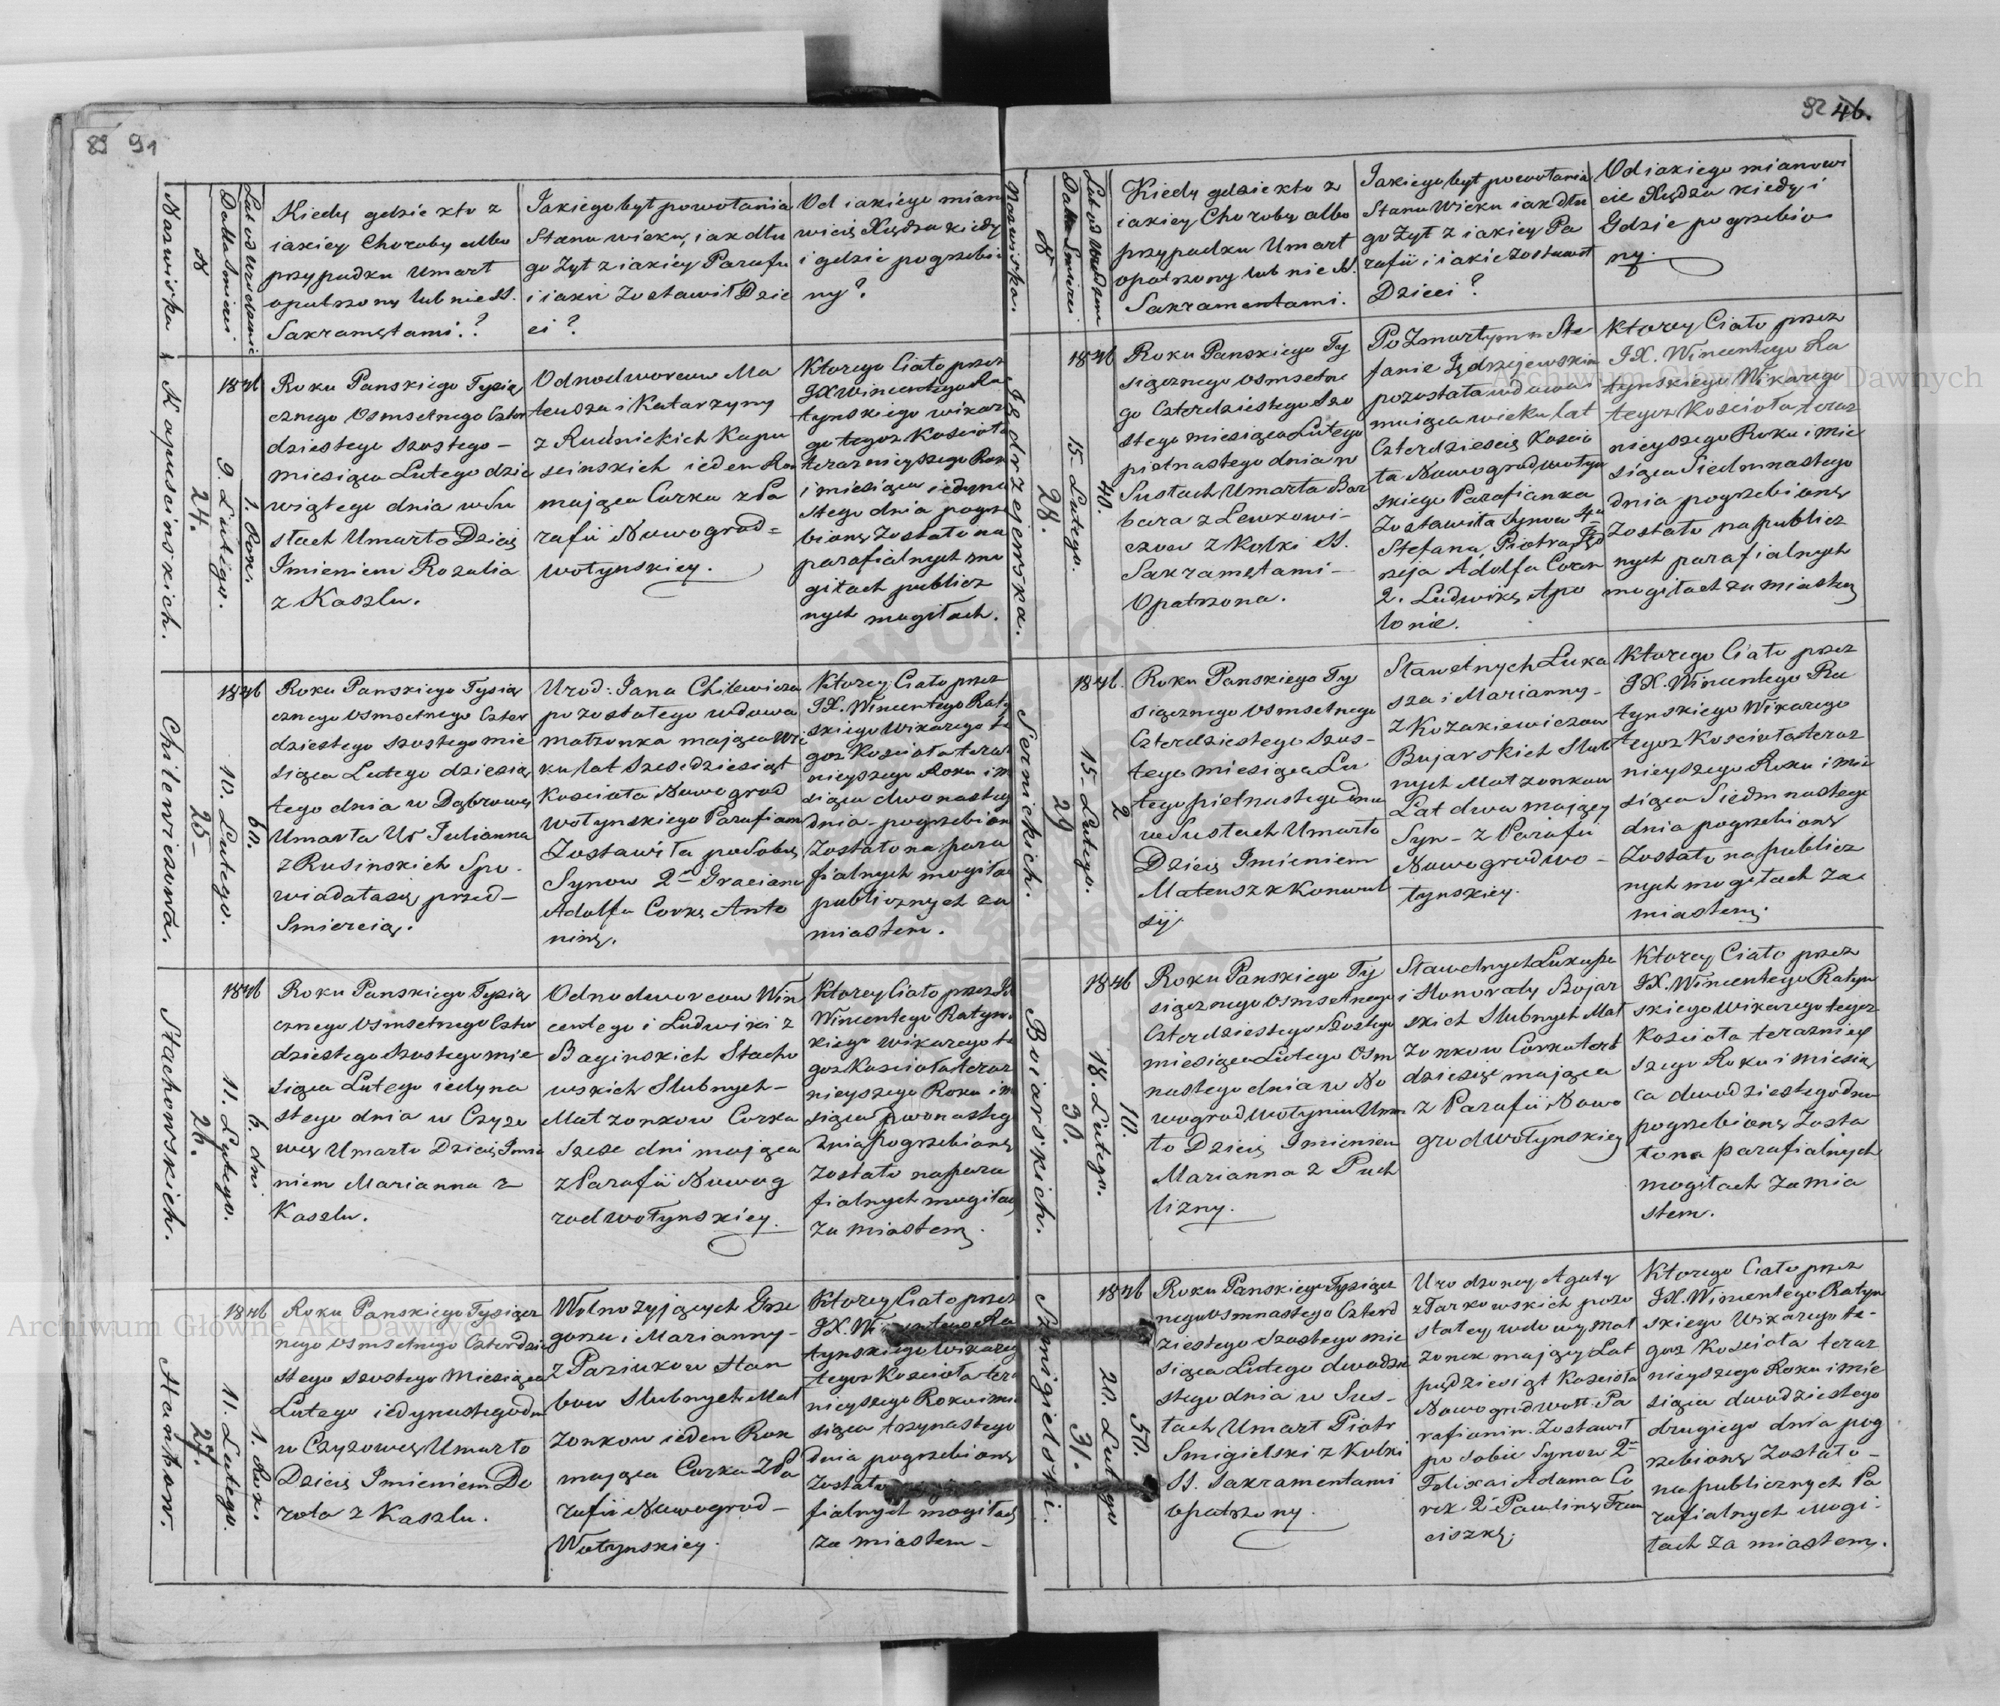 89 91
Nazwiska
N
Data Smierci
Lat od urodzenia
Kiedy gdzie kto z
iakiey Choroby albo
przypadku Umarł
opatrzony lub nie SS.
Sakramętami. ?
Jakiego był powołania
Stanu wieku, iak dłu
go Żył z iakiey Parafii
i iakie zostawił Dzie
ci ?
Od iakiego miano
wicie Xiędza kiedy
i gdzie pogrzebio
ny ?
Kapuscinskich.
24.
1846
9. Lutego.
1. Rok.
Roku Panskiego Tysią
cznego Osmsetnego Czter
dziestego szostego –
miesiąca Lutego dzie
wiątego dnia w Su
słach Umarło Dziecię
Imieniem Rozalia
z Kaszlu.
Odnodworcow Ma
teusza i Katarzyny
z Rudnickich Kapu
scinskich ieden Rok
maiąca Corka z Pa
rafii Nowogrod=
wołynskiey.
Ktorego Ciało przez
JX Wincentego Ra
tynskiego wikare
go tegoz Kościoła
teraznieyszego Roku
i miesiąca iedyna
stego dnia pogrze
bione Zostało na
parafialnych mo
giłach publicz
nych mogiłach.
Chilewiczowa.
25–
1846
10. Lutego.
60.
Roku Panskiego Tysią
cznego Osmsetnego Czter
dziestego szostego mie
siąca Lutego dziesią
tego dnia w Dąbrowey
Umarła Ur Julianna
z Rusinskich Spo
wiadała się przed–
Smiercią.
Urod: Jana Chilewicza
pozostałego wdowca
małzonka maiąca wie
ku lat Szesdziesiąt
Kościoła Nowogrod
wołynskiego Parafian
Zostawiła po Sobie
Synow 2– Graciana
Adolfa Corkę Anto
ninę.
Ktorey Ciało przez
JX. Wincentego Raty
skiego Wikarego te
goz Kościoła teraz
nieyszego Roku i m
siąca dwonastego
dnia – pogrzebione
Zostało na para
fialnych mogiłach
publicznych za
miastem.
Stachowskich.
26.
1846
11. Lutego.
6. dni
Roku Panskiego Tysią
cznego Osmsetnego Czter
dziestego Szostego mie
siąca Lutego iedyna
stego dnia w Czyżo
wey Umarło Dziecię Imie
niem Marianna z
Kaszlu.
Odnodworcow Win
centego i Ludwiki z
Baginskich Stacho
wskich Slubnych–
Małzonkow Corka
Szesc dni maiąca
z Parafii Nowog
rodwołynskiey.
Ktorey Ciało przez JX
Wincentego Ratyn
skiego wikarego te
goz Kościoła teraz
nieyszego Roku i mie
siąca Dwonastego
dnia pogrzebione
zostało na para
fialnych mogiłach
za miastem.
Hanbow.
27.
1846
11. Lutego.
1. Rok.
Roku Panskiego Tysiącz
nego Osmsetnego Czterdzie
stego szostego Miesiąca
Lutego iedynastego dn
w Czyżowey Umarło
Dziecię Imieniem Do
rota z Kaszlu.
Wolnożyjących Grze
gorza i Marianny–
z Paziukow Han
bow Slubnych Mał
zonkow ieden Rok
maiąca Corka z Pa
rafii Nowogrod–
Wołynskiey.
Ktorey Ciało przez
JX. Wincentego Ra
tynskiego Wikarego
tegoz Kościoła tera
nieyszego Roku i mie
siąca trzynastego
dnia pogrzebione
Zostało
fialnych mogiłach
za miastem–
92 46.
Nazwiska.
N
Data Smierci
Lat od Urodzenia
Kiedy gdzie kto z
iakiey Choroby albo
przypadku Umarł
opatrzony lub nie SS.
Sakramentami.
Jakiego był powołania
Stanu Wieku iak dłu
go Żył z iakiey Pa
rafii i iakie zostawił
Dzieci ?
Od iakiego mianowi
cie Xiędza kiedy i
Gdzie pogrzebio
ny.
Jędrzejewska.
28.
1846
15– Lutego.
40.
Roku Panskiego Ty
siącznego Osmsetne
go Czterdziestego Szo
stego miesiąca Lutego
pietnastego dnia w
Susłach Umarła Bar
bara z Lewkowi–
czow z Kolki SS.
Sakramętami–
Opatrzona.
Po Zmarłym Ste
fanie Jędrzejewskim
pozostała wdowa
maiąca wieku lat
Czterdziescie Koscio
ła Nowogrodwołyn
skiego Parafianka
Zostawiła Synow 4ch
Stefana, Piotra, Ję
rzeja Adolfa Corek
2. Ludwikę Apo
lonie.
Ktorey Ciało przez
JX. Wincentego Ra
tynskiego Wikarego
tegoz Kościoła, teraz
nieyszego Roku i mie
siąca Siedmnastego
dnia pogrzebione
Zostało na publicz
nych parafialnych
mogiłach za miastem
Sernickich.
29
1846.
15 Lutego.
2
Roku Panskiego Ty
siącznego Osmsetnego
Czterdziestego Szos–
tego miesiąca Lu
tego pietnastego dnia
w Susłach Umarło
Dziecię Imieniem
Mateusz z Konwul
sij
Sławetnych Luka
sza i Marianny–
z Kozakiewiczow
Bujarskich Slub
nych Małzonkow
Lat dwa maiący
Syn– z Parafii
Nowogrodwo–
łynskiey.
Ktorego Ciało przez
JX. Wincentego Ra
tynskiego Wikarego
tegoz Kościoła teraz
nieyszego Roku i mie
siąca Siedmnastego
dnia pogrzebione
Zostało na publicz
nych mogiłach za
miastem.
Boiarskich.
30.
1846
18. Lutego.
10.
Roku Panskiego Ty
siącznego Osmsetnego
Czterdziestego Szostego
miesiąca Lutego Osm
nastego dnia w No
wogrodwołyniu Umar
ło Dziecię Imieniem
Marianna z Puch
lizny.
Sławetnych Lukasza
i Honoraty Bojar
skich Slubnych Mał
zonkow Corka lat
dziesięc maiąca
z Parafii Nowo
grodwołynskiey
Ktorey Ciało przez
JX. Wincentego Ratyn
skiego Wikarego tegoz
Kościoła teraznieyj
szego Roku i miesią
ca dwudziestego dnia
pogrzebione Zosta
ło na parafialnych
mogiłach za mia
stem.
Szmigielski.
31.
1846
20. Lutego
50.
Roku Panskiego Tysiącz
nego Osmnastego Czterd
ziestego Szostego mie
siąca Lutego dwudzie
stego dnia w Sus–
łach Umarł Piotr
Smigielski z Kolki
SS. Sakramentami
opatrzony.
Urodzoney Agaty
z Tarkowskich pozo
stałey wdowy mał
zonek maiący Lat
pędziesiąt Kościoła
Nowogrodwoł. Pa
rafianin. Zostawił
po sobie Synow 2–
Felixa i Adama Co
rek 2– Paulinę Fran
ciszkę.
Ktorego Ciało przez
JX. Wincentego Ratyn
skiego Wikarego te–
goz Kościoła teraz
nieyszego Roku i mie
siąca dwudziestego
drugiego dnia pog
rzebione Zostało–
na publicznych Pa
rafialnych Mogi–
łach za miastem.
Archiwum Główne Akt Dawnych
Archiwum Główne Akt Dawnych